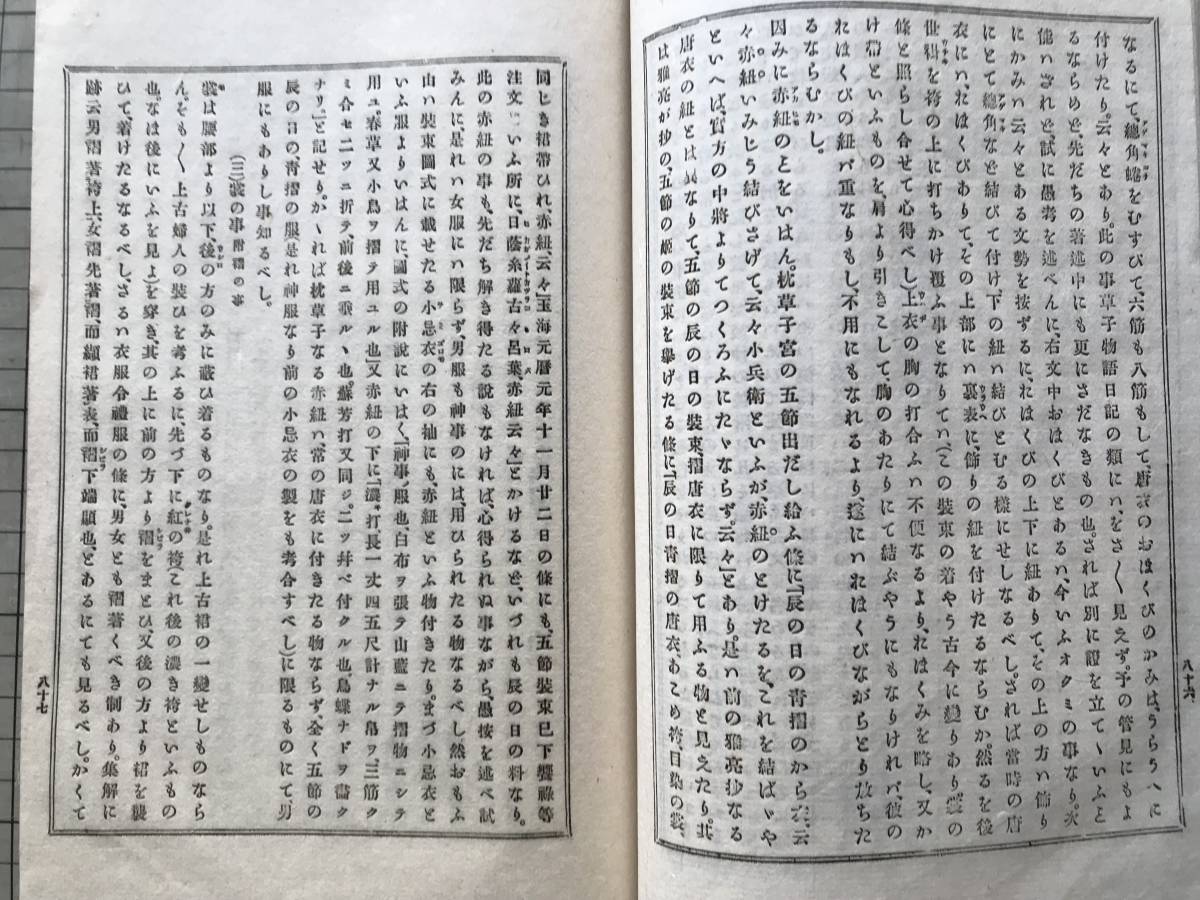 なるにて、總角蜷をむすびて、六筋も八筋もして、唐衣のおほくびのかみは、うらうへに
付けたり。云々とあり。此の事草子物語日記の類にハ、をさ〳〵見えず。予の管見にもよ
るならめど、先だちの著述中にも更にさだなきもの也。されば別に證を立てゝいふと
能ハされど、試に愚考を述べんに、右文中おほくびとあるハ、今いふオクミの事なり。次
にかみハ云々とある文勢を按ずるに、おほくびの上下に紐ありて、その上の方ハ飾り
にとて總角など結びて付け下の紐ハ結びとむる様にせしなるべし。されば當時の唐
衣にハ、おほくびありて、その上部にハ裏表に、飾りの紐を付けたるならむか。然るを後
世裳を袴の上に打ちかけ覆ふ事となりてハ、(この裝束の着やう古今に變りあり。裳の
條と照らし合せて心得べし)上衣の胸の打合ふハ不便なるより、おほくみを略し、又か
け帶といふものを、肩より引きこして胸のあたりにて結ぶやうにもなりければ、彼の
おほくびの紐バ重なりもし、不用にもなれるより、遂にハおほくびながらとり放ちた
るならむかし。
因みに赤紐のとをいはん。枕草子宮の五節出だし給ふ條に「辰の日の青摺のから衣、云
々、赤紐いみじう結びさげて、云々小兵衛といふが、赤紐のとけたるを、これを結ばゝや
といへば、實方の中將よりてつくろふにたゝならず。云々」とあり。是ハ前の雅亮抄なる
唐衣の紐とは異なりて、五節の辰の日の裝束、摺唐衣に限りて用ふる物と見えたり。其
は雅亮が抄の、五節の姫の裝束を擧げたる條に、「辰の日青摺の唐衣、あこめ袴、目染の裳、
八十六
同じき裙帶ひれ、赤紐、云々」玉海元暦元年十一月廿二日の條にも、五節裝束已下饗祿等
注文にいふ所に、日蔭糸蘿古々呂葉、赤紐云々」とかけるなど、いづれも辰の日の料なり。
此の赤紐の事も、先だち解き得たる説もなければ、心得られぬ事ながら、愚按を述べ試
みんに、是れハ女服にハ限らず、男服も神事のには、用ひられたる物なるべし然おもふ
山ハ裝束圖式に載せたる小忌衣の右の袖にも、赤紐といふ物付きたり。まづ小忌衣と
いふ服よりいはんに、圖式の附說にいはく、「神事ノ服也、白布ヲ張テ山藍ニテ摺物ニシテ
用ユ。春草又小鳥ヲ摺テ用ユル也」又赤紐の下に、「濃打、長一丈四五尺計ナル帛ヲ、三筋ク
ミ合セ二ツニ折テ、前後ニ垂ルヽ也。蘇芳打又同ジ。二ツ幷ベ付クル也、鳥蝶ナドヲ畵ク
ナリ」と記せり。かゝれば枕草子なる赤紐ハ、常の唐衣に付きたる物ならず、全く五節の
辰の日の、青摺の服是れ神服なり前の小忌衣の製をも考合すべし)に限るものにて男
服にもありし事知るべし。
(三)裳の事 附褶の事
裳は腰部より以下、後の方のみに蔽ひ着るものなり。是れ上古裙の一變せしものなら
ん。そも〳〵上古婦人の裝ひを考ふるに、先づ下に紅の袴(これ後の濃き袴といふもの
也。なほ後にいふを見よ)を穿き、其の上に前の方より褶をまとひ、又後の方より裙を襲
ひて、着けたるなるべし、さるハ衣服令禮服の條に、男女とも褶著くべき制あり。集解に
跡云男褶著袴上、女褶先著褶、而纈裙著表、而褶下端顯也、とあるにても見るべし。かくて
八十七